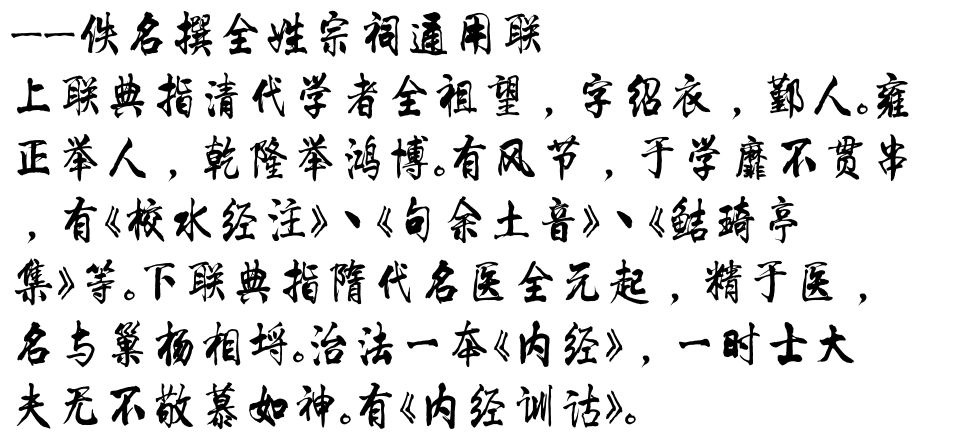 ——佚名撰全姓宗祠通用联
上联典指清代学者全祖望，字绍衣，鄞人。雍
正举人，乾隆举鸿博。有风节，于学靡不贯串
，有《校水经注》、《句余土音》、《鲒琦亭
集》等。下联典指隋代名医全元起，精于医，
名与巢杨相埒。治法一本《内经》，一时士大
夫无不敬慕如神。有《内经训诂》。